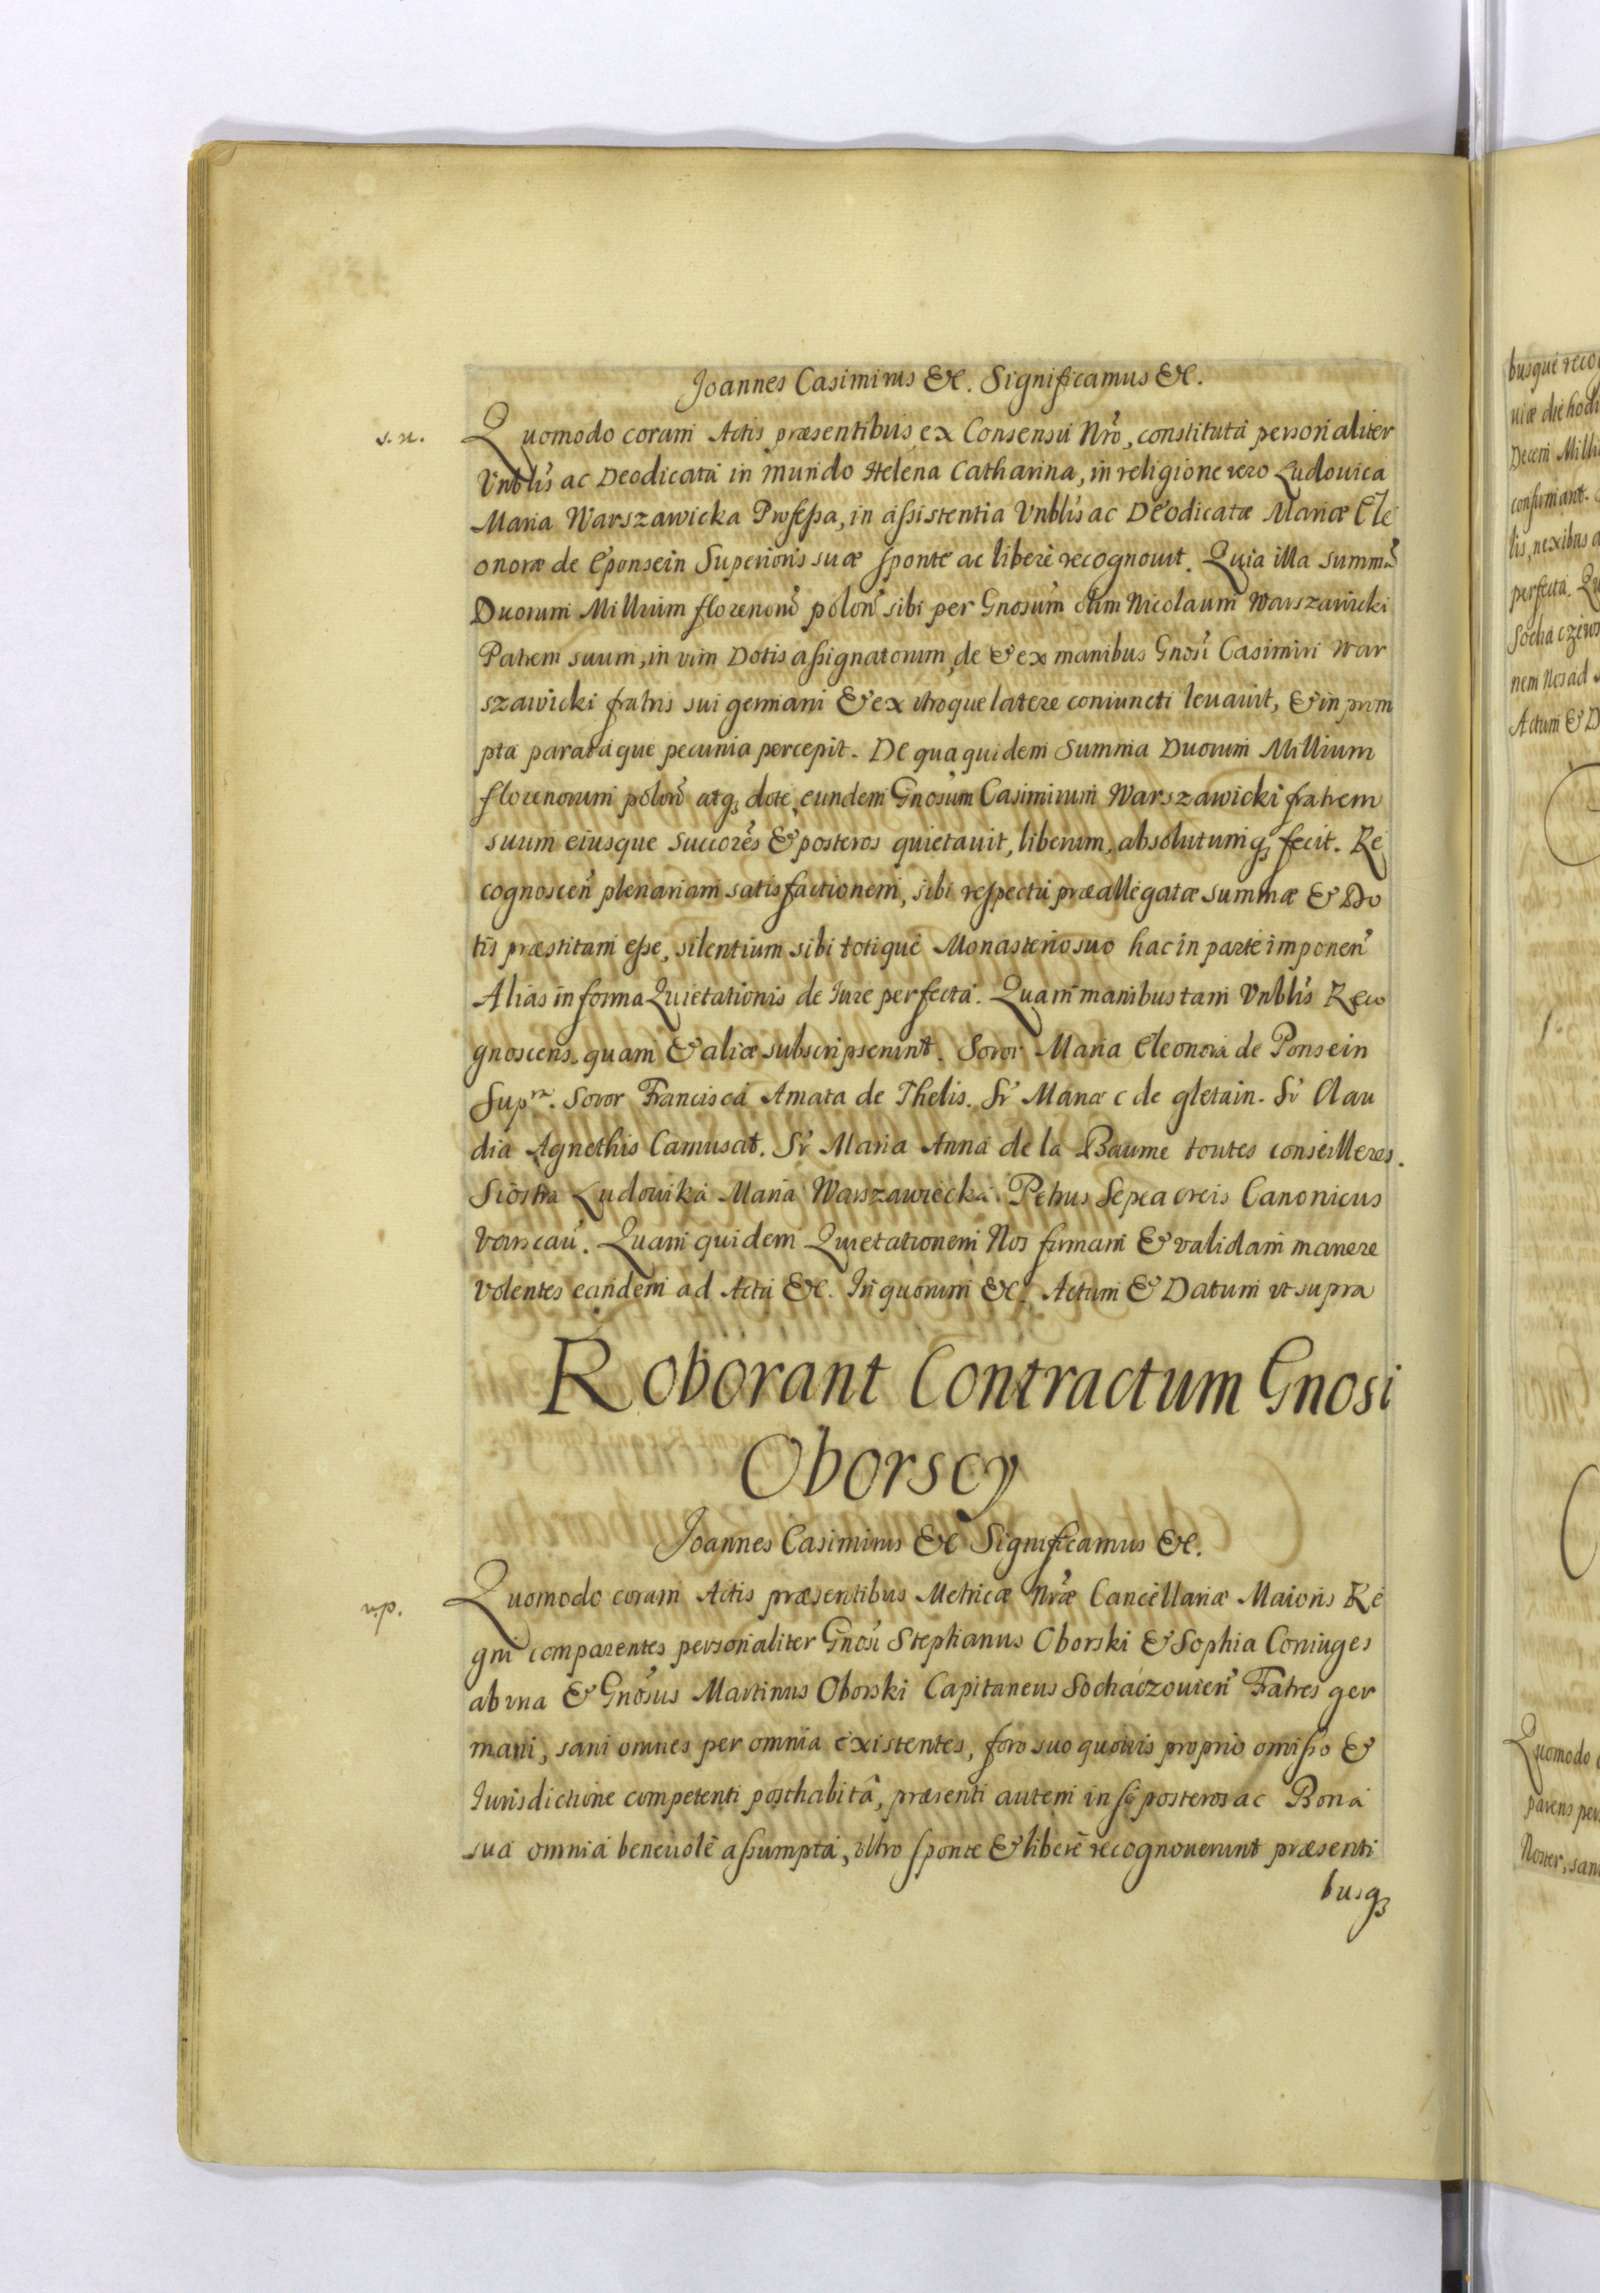 Joannes Casimirus &c. Significamus &c.
s. n.
Quomodo coram Actis præsentibus ex Consensu Nrô, constituta personaliter
Vnblis ac Deodicata in mundo Helena Catharina, in religione vero Ludouica
Maria Warszawicka Professa, in assistentia Vnblis ac Deodicatæ Mariæ Ele
onoræ de Eponsein Superioris suæ sponte ac liberè recognouit. Quia illa summã
Duorum Millium florenorũ polon̄ sibi per Gnosum olim Nicolaum Warszawicki
Patrem suum, in vim Dotis assignatorum, de & ex manibus Gnosi Casimiri War
szawicki fratris sui germani & ex vtroque latere coniuncti leuauit, & in prom
pta parataque pecunia percepit. De qua quidem Summa Duorum Millium
florenorum polon̄ atq; dote, eundem Gnosum Casimirum Warszawicki fratrem
suum eiusque Succorẽs & posteros quietauit, liberum, absolutumq; fecit. Re
cognoscen̄ plenariam satisfactionem, sibi respectu præallegatæ summæ & Do
tis præstitam esse, silentium sibi totique Monasterio suo hac in parte imponen̄
Alias in forma Quietationis de Iure perfecta. Quam manibus tam Vnblis Reco
gnoscens, quam & aliæ subscripserunt. Soror Maria Eleonora de Ponsein
Supra. Soror Francisca Amata de Thelis. Sr Maria c de gletain. Sr Clau
dia Agnethis Camusat. Sr Maria Anna de la Baume toutes conseilleres.
Siostra Ludouika Maria Warszawiecka. Petrus Canonicus
Quam quidem Quietationem Nos firmam & validam manere
volentes eandem ad Actu &c. In quorum &c. Actum & Datum vt supra
Roborant Contractum Gnosi
Oborscy
Joannes Casimirus &c Significamus &c.
n.p.
Quomodo coram Actis præsentibus Metricæ Nræ Cancellariæ Maioris Re
gni comparentes personaliter Gnosi Stephanus Oborski & Sophia Coniuges
ab vna & Gnosus Martinus Oborski Capitaneus Sochaczouien̄ Fratres ger
mani, sani omnes per omnia existentes, foro suo quouis proprio omisso &
Iurisdictione competenti posthabitâ, præsenti autem in se posteros ac Bona
sua omnia beneuolè assumpta, vltro sponte & liberè recognouerunt præsenti
busq;